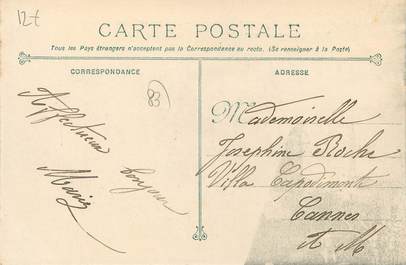 12€
CARTE POSTALE
Tous les Pays étrangers n'acceptent pas la Correspondance au recto. (Se renseigner à la Poste)
CORRESPONDANCE
ADRESSE
83
Affectueux
bonjour
Marie
Mademoiselle
Josephine Roche
Villa Capodimonte
Cannes
A M